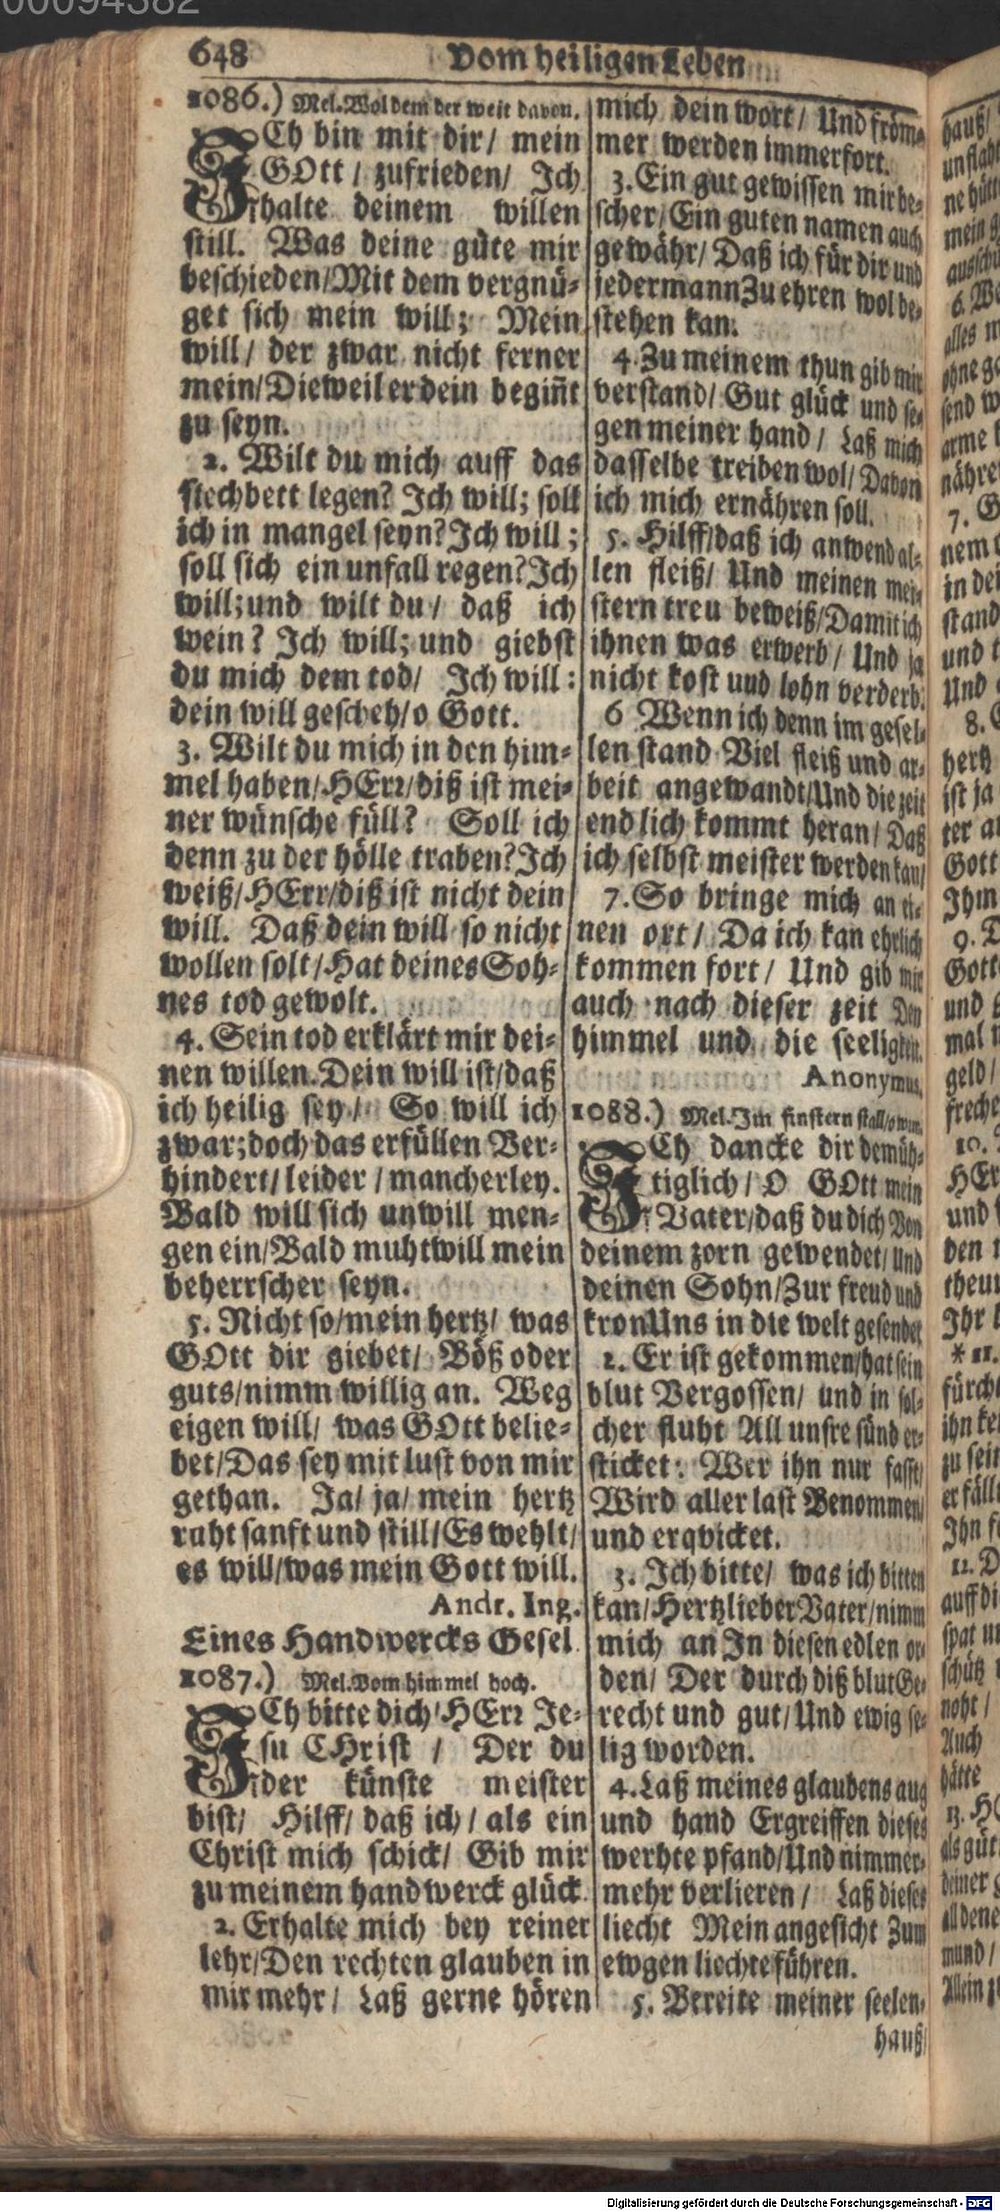 00094382
648 Vom heiligen Leben
1086.) Mel. Wol dem der weit davon.
ICh bin mit dir/ mein
GOtt/ zufrieden/ Ich
halte deinem willen
still. Was deine güte mir
beschieden/Mit dem vergnü-
get sich mein will; Mein
will/ der zwar nicht ferner
mein/Dieweil er dein begiñt
zu seyn.
2. Wilt du mich auff das
siechbett legen? Ich will; soll
ich in mangel seyn? Ich will;
soll sich ein unfall regen? Ich
will; und wilt du/ daß ich
wein? Ich will; und giebst
du mich dem tod/ Ich will:
dein will gescheh/o Gott.
3. Wilt du mich in den him-
mel haben/HErr/diß ist mei-
ner wünsche füll? Soll ich
denn zu der hölle traben? Ich
weiß/HErr/diß ist nicht dein
will. Daß dein will so nicht
wollen solt/Hat deines Soh-
nes tod gewolt.
4. Sein tod erklärt mir dei-
nen willen. Dein will ist/daß
ich heilig sey/ So will ich
zwar; doch das erfüllen Ver-
hindert/ leider/ mancherley.
Bald will sich unwill men-
gen ein/Bald muhtwill mein
beherrscher seyn.
5. Nicht so/mein hertz/ was
GOtt dir giebet/ Böß oder
guts/nimm willig an. Weg
eigen will/ was GOtt belie-
bet/Das sey mit lust von mir
gethan. Ja/ ja/ mein hertz
ruht sanft und still/Es wehlt/
es will/was mein Gott will.
Andr. Ing.
Eines Handwercks Gesel.
1087.) Mel. Vom himmel hoch.
ICh bitte dich/HErr Je-
su CHrist/ Der du
der künste meister
bist/ Hilff/ daß ich/ als ein
Christ mich schick/ Gib mir
zu meinem handwerck glück.
2. Erhalte mich bey reiner
lehr/Den rechten glauben in
mir mehr/ Laß gerne hören
mich dein wort/ Und fröm-
mer werden immerfort.
3. Ein gut gewissen mir be-
scher/Ein guten namen auch
gewähr/ Daß ich für dir und
jedermann Zu ehren wol be-
stehen kan.
4. Zu meinem thun gib mir
verstand/ Gut glück und se-
gen meiner hand/ Laß mich
dasselbe treiben wol/ Davon
ich mich ernähren soll.
5. Hilff/daß ich anwend al-
len fleiß/ Und meinen mei-
stern treu beweiß/Damit ich
ihnen was erwerb/ Und ja
nicht kost und lohn verderb.
6 Wenn ich denn im gesel-
len stand Viel fleiß und ar-
beit angewandt/Und die zeit
endlich kommt heran/ Daß
ich selbst meister werden kan/
7. So bringe mich an ei-
nen ort/ Da ich kan ehrlich
kommen fort/ Und gib mir
auch nach dieser zeit Den
himmel und die seeligkeit.
Anonymus.
1088.) Mel. Im finstern stall/o wun.
ICh dancke dir demüh-
tiglich/ O GOtt mein
Vater/daß du dich Von
deinem zorn gewendet/ Und
deinen Sohn/Zur freud und
kron Uns in die welt gesendet
2. Er ist gekommen/hat sein
blut Vergossen/ und in sol-
cher fluht All unsre sünd er-
sticket: Wer ihn nur fasst/
Wird aller last Benommen/
und erqvicket.
3. Ich bitte/ was ich bitten
kan/Hertzlieber Vater/nimm
mich an In diesen edlen or-
den/ Der durch diß blut Ge-
recht und gut/Und ewig se-
lig worden.
4. Laß meines glaubens aug
und hand Ergreiffen dieses
werhte pfand/Und nimmer-
mehr verlieren/ Laß dieses
liecht Mein angesicht Zum
ewgen liechte führen.
5. Bereite meiner seelen-
hauß/
Digitalisierung gefördert durch die Deutsche Forschungsgemeinschaft - DFG